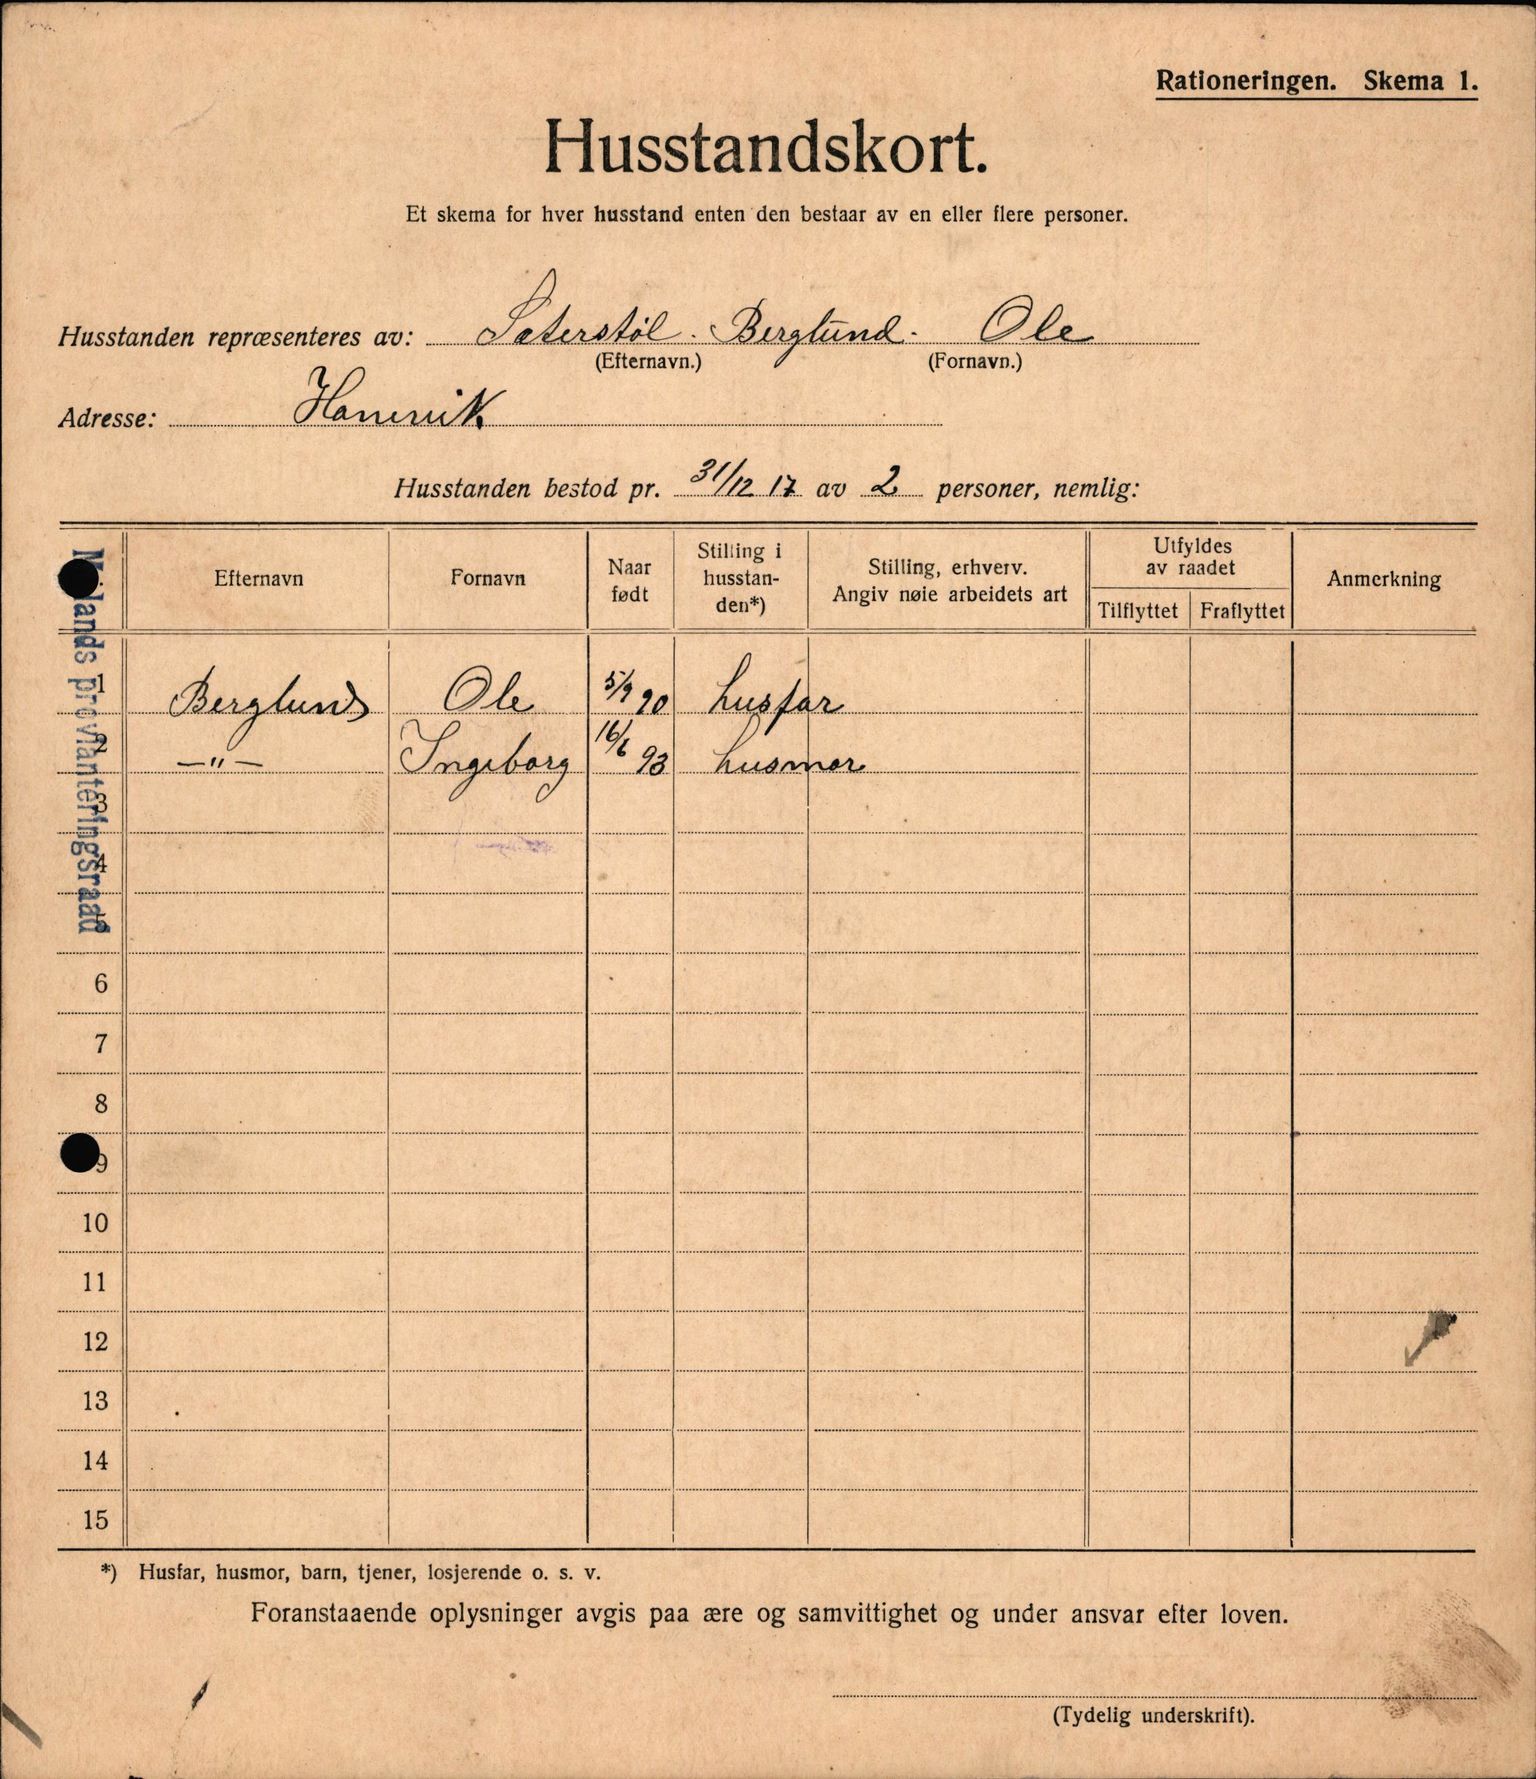 Rationeringen. Skema 1.
Husstandskort.
Et skema for hver husstand enten den bestaar av en eller flere personer.
Husstanden repræsenteres av: Sæterstøl. Berglund. Ole
(Efternavn.) (Fornavn.)
Adresse:
Husstanden bestod pr. 31/12 17 av 2 personer, nemlig:
Efternavn Fornavn Naar født Stilling i husstan-den*) Stilling, erhverv. Angiv nøie arbeidets art Utfyldes av raadet Tilflyttet Fraflyttet Anmerkning
1 Berglund Ole 5/9 90 husfar
2 —"— Ingeborg 16/6 93 husmor
3
4
5
6
7
8
9
10
11
12
13
14
15
provianteringsraad
*) Husfar, husmor, barn, tjener, losjerende o. s. v.
Foranstaaende oplysninger avgis paa ære og samvittighet og under ansvar efter loven.
(Tydelig underskrift).